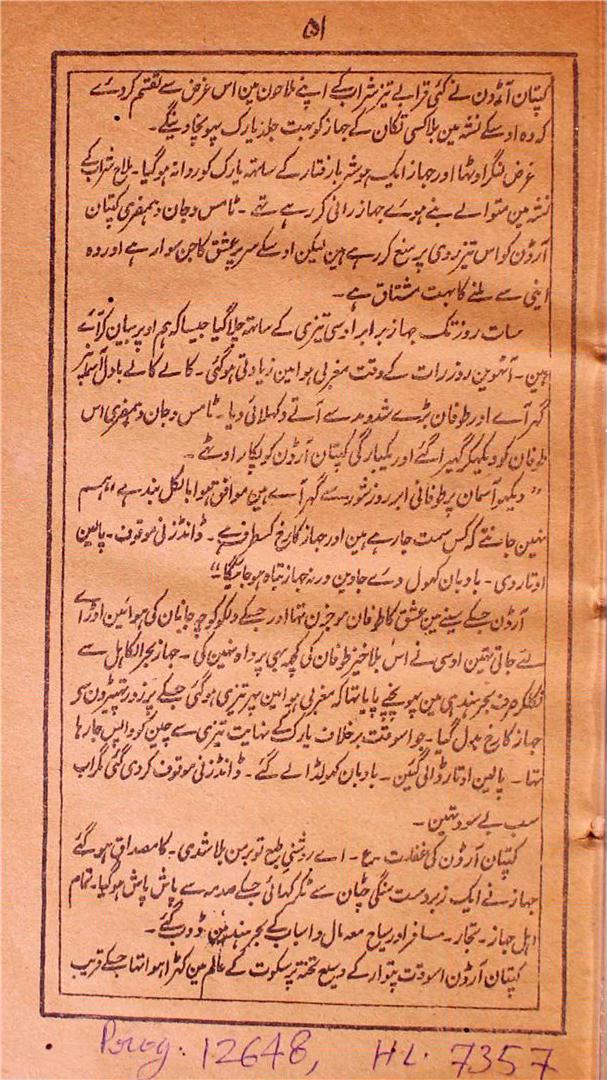 ۵۱
کپتان آرڈون نے کئی قرابے تیز شراب کے اپنے ملاحون مین اس غرض سے تقسیم کر دئے
کہ وہ اوسکے نشہ مین بلا کسی تکان کے جہاز کو بہت جلد یارک پہونچا دینگے۔
غرض لنگر اوٹھا اور جہاز ایک ہوشربا رفتار کے ساتھ یارک کو روانہ ہو گیا۔ ملاح شراب کے
نشہ مین متوالے بنے ہوے جہاز رانی کر رہے تھے۔ ٹامس و جان و ہمفری کپتان
آرڈون کو اس تیز روی پر منع کر رہے ہین لیکن اوسکے سر پر عشق کا جن سوار ہے اور وہ
اینی سے ملنے کا بہت مشتاق ہے۔
سات روز تک جہاز برابر اوسی تیزی کے ساتھ چلا گیا جیسا کہ ہم اوپر بیان کر آئے
ہین۔ آٹھوین روز رات کے وقت مغربی ہوا مین زیادتی ہو گئی۔ کالے کالے بادل آسمان پر
گھر آے اور طوفان بڑے شد و مد سے آتے دکھلائی دیا۔ ٹامس و جان و ہمفری اس
طوفان کو دیکھکر گھبرا گئے اور یکبارگی کپتان آرڈون کو پکار اوٹھے۔
"دیکھو آسمان پر طوفانی ابر زور شور سے گھر آے ہین موافق ہوا بالکل بند ہے ہم
نہین جانتے کہ کس سمت جا رہے ہین اور جہاز کا رخ کسطرف ہے۔ ڈانڈ زنی موقوف۔ پالین
اوتار دی۔ بادبان کھول دئے جاوین ورنہ جہاز تباہ ہو جائیگا"
آرڈون جسکے سینے مین عشق کا طوفان موجزن تھا اور جسکے دلکو کوچہ جانان کی ہوائین اوڑاے
لئے جاتی تھین اوسی نے اس بلا خیز طوفان کی کچھ بھی پرواہ نہین کی۔ جہاز بحر الکاہل سے
نکلکر صرف بحر ہند ہی مین پہونچنے پایا تھا کہ مغربی ہوا مین پھر تیزی ہو گئی جسکے پر زور تھپیڑون سے
جہاز کا رخ بدل گیا۔ جو اسوقت برخلاف یارک کے نہایت تیزی سے چین کو واپس جا رہا
تھا۔ پالین اوتار ڈالی گئین۔ بادبان کھولڈالے گئے۔ ڈانڈ زنی موقوف کر دی گئی مگر اب
سب بے سود تھین۔
کپتان آرڈون کی غفلت ع۔ اے روشنی طبع تو بر من بلا شدی۔ کا مصداق ہو گئے
جہاز نے ایک زبردست سنگی چٹان سے ٹکر کھائی جسکے صدمہ سے پاش پاش ہو گیا۔ تمام
اہل جہاز۔ تجار۔ مسافر اور سیاح معہ مال و اسباب کے بحر ہند مین ڈوب گئے۔
کپتان آرڈون اسوقت پتوار کے وسیع تختہ پر سکوت کے عالم مین کھڑا ہوا تھا جسکے قریب
Porog. 12648, HL. 7357